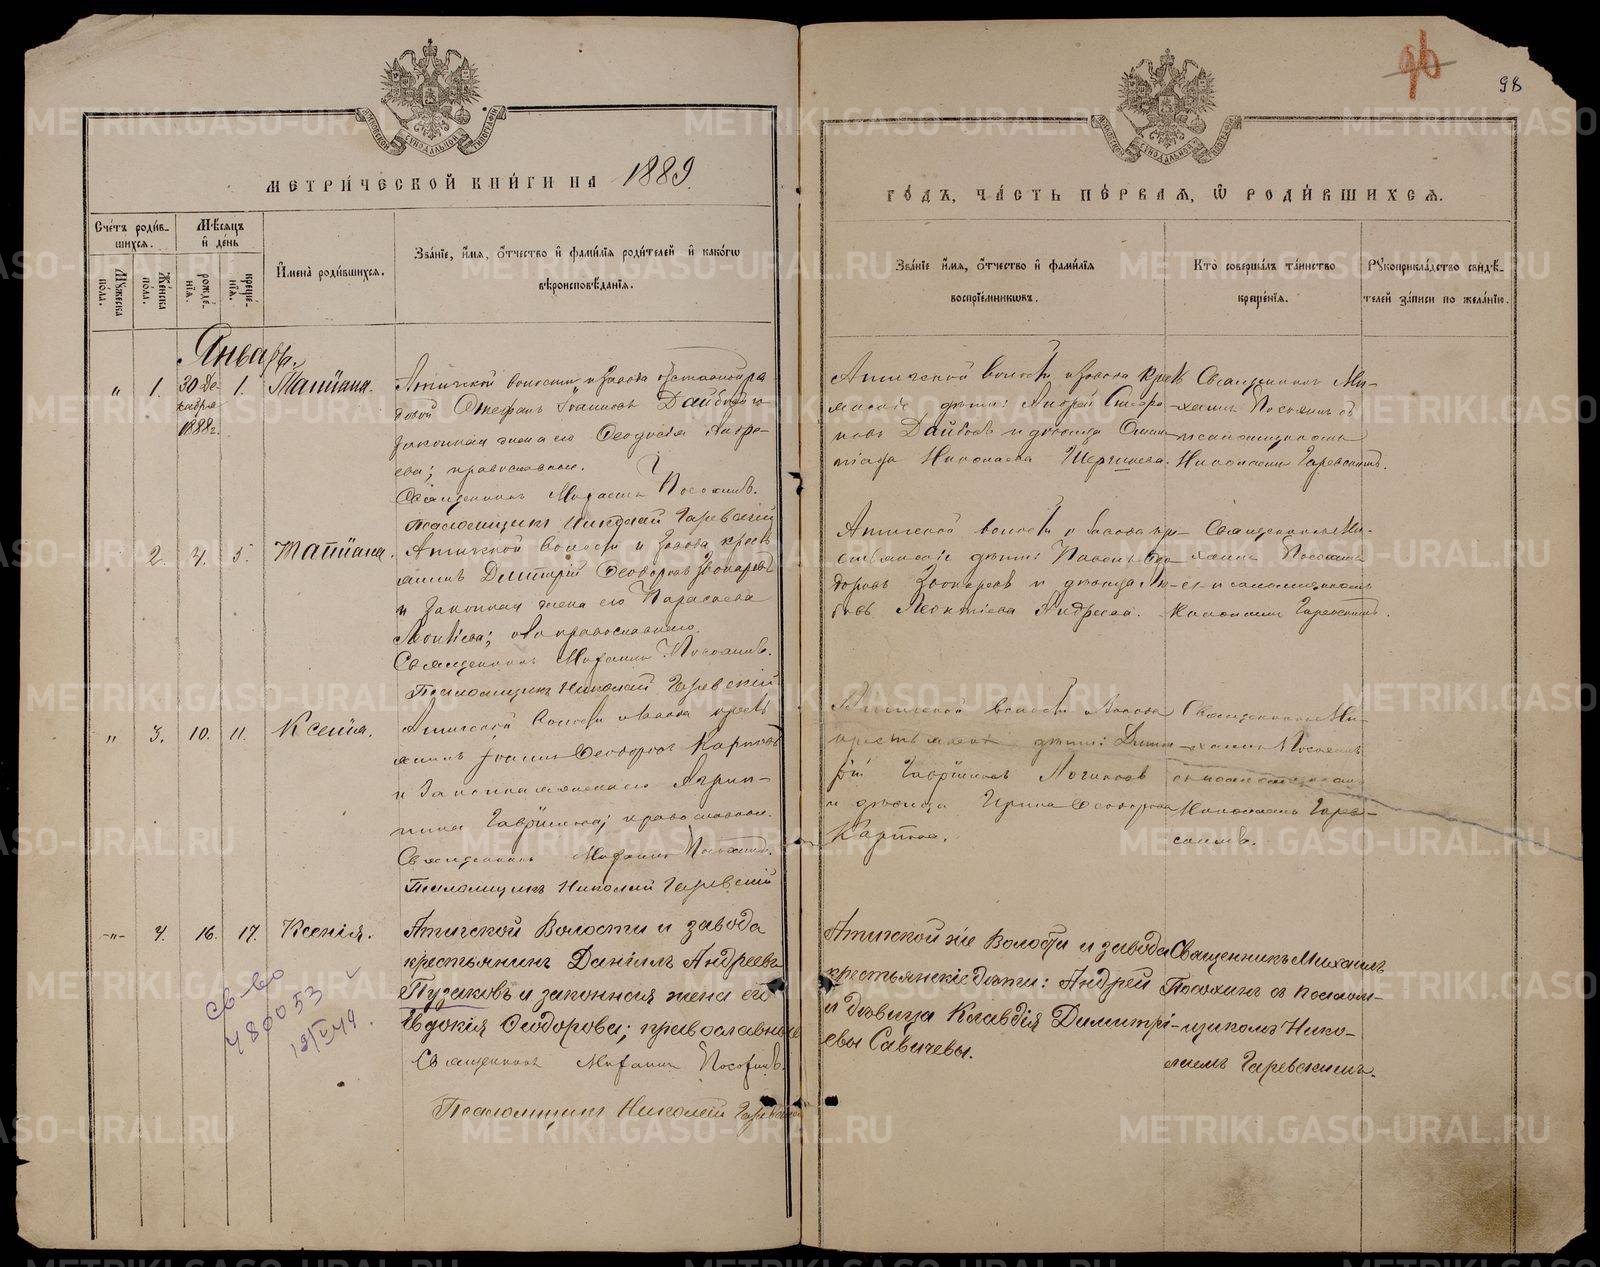 96
98
МЕТРИЧЕСКОЙ КНИГИ НА 1889
ГОДЪ, ЧАСТЬ ПЕРВАЯ, Ѡ РОДИВШИХСЯ.
Счетъ родив-
шихся.
Мѣсяцъ
и день
Мужеска пола.
Женска пола.
рожде-
нія.
креще-
нія.
Имена родившихся.
Званіе, имя, отчество и фамилія родителей и какогѡ
вѣроисповѣданія.
Званіе имя, отчество и фамилія
воспріемникѡвъ.
Кто совершалъ таинство
крещенія.
Рукоприкладство свидѣ-
телей записи по желанію.
Январь.
" 1. 30 Де- 1. Татіана.
кабря
1888г.
Атигской волости и завода отставной ря
довой Стефанъ Іоанновъ Дайбовъ и
законная жена его Ѳеодосія Андре-
ева; православные.
Священникъ Михаилъ Посохинъ.
Псаломщикъ Николай Гаревскій
Атигской волости и завода крестъ
янскіе дѣти: Андрей Стефа-
новъ Дайбовъ и дѣвица Олим-
піада Николаева Щергинева.
Священникъ Ми-
хаилъ Посохинъ съ
псаломщикомъ
Николаемъ Гаревскимъ.
2. 4. 5. Татіана.
Атигской волости и завода крестъ
янинъ Димитрій Ѳеодоровъ Звонаревъ
и законная жена его Параскева
Леонтіева; оба православные.
Священникъ Михаилъ Посохинъ.
Псаломщикъ Николай Гаревскій
Атигской волости и завода кре-
стьянскіе дѣти: Павелъ Ѳео-
доровъ Звонаревъ и дѣвица Лю-
бовь Леонтіева Андреева.
Священникъ Ми-
хаилъ Посохинъ
съ псаломщикомъ
Николаемъ Гаревскимъ.
" 3. 10. 11. Ксенія.
Атигской волости и завода крестъ
янинъ Іоаннъ Ѳеодоровъ Карповъ
и законная жена его Агрип-
пина Гавріилова; православные.
Священникъ Михаилъ Посохинъ.
Псаломщикъ Николай Гаревскій
Атигской волости и завода
крестьянскіе дѣти: Димит-
рій Гавріиловъ Логиновъ
и дѣвица Ирина Ѳеодорова
Карпова.
Священникъ Ми-
хаилъ Посохинъ
съ псаломщикомъ
Николаемъ Гарев-
скимъ.
-"- 4. 16. 17. Ксенія.
Атигской Волости и завода
крестьянинъ Даніилъ Андреевъ
Пузаковъ и законная жена его
Евдокія Ѳеодорова; православные
Священникъ Михаилъ Посохинъ.
Псаломщикъ Николай Гаревскій
Атигской же Волости и завода
крестьянскіе дѣти: Андрей
и дѣвица Клавдія Димитрі-
евы Савичевы.
Священникъ Михаилъ
Посохинъ съ псалом-
щикомъ Нико-
лаемъ Гаревскимъ.
св-во
480053
19/V 49.